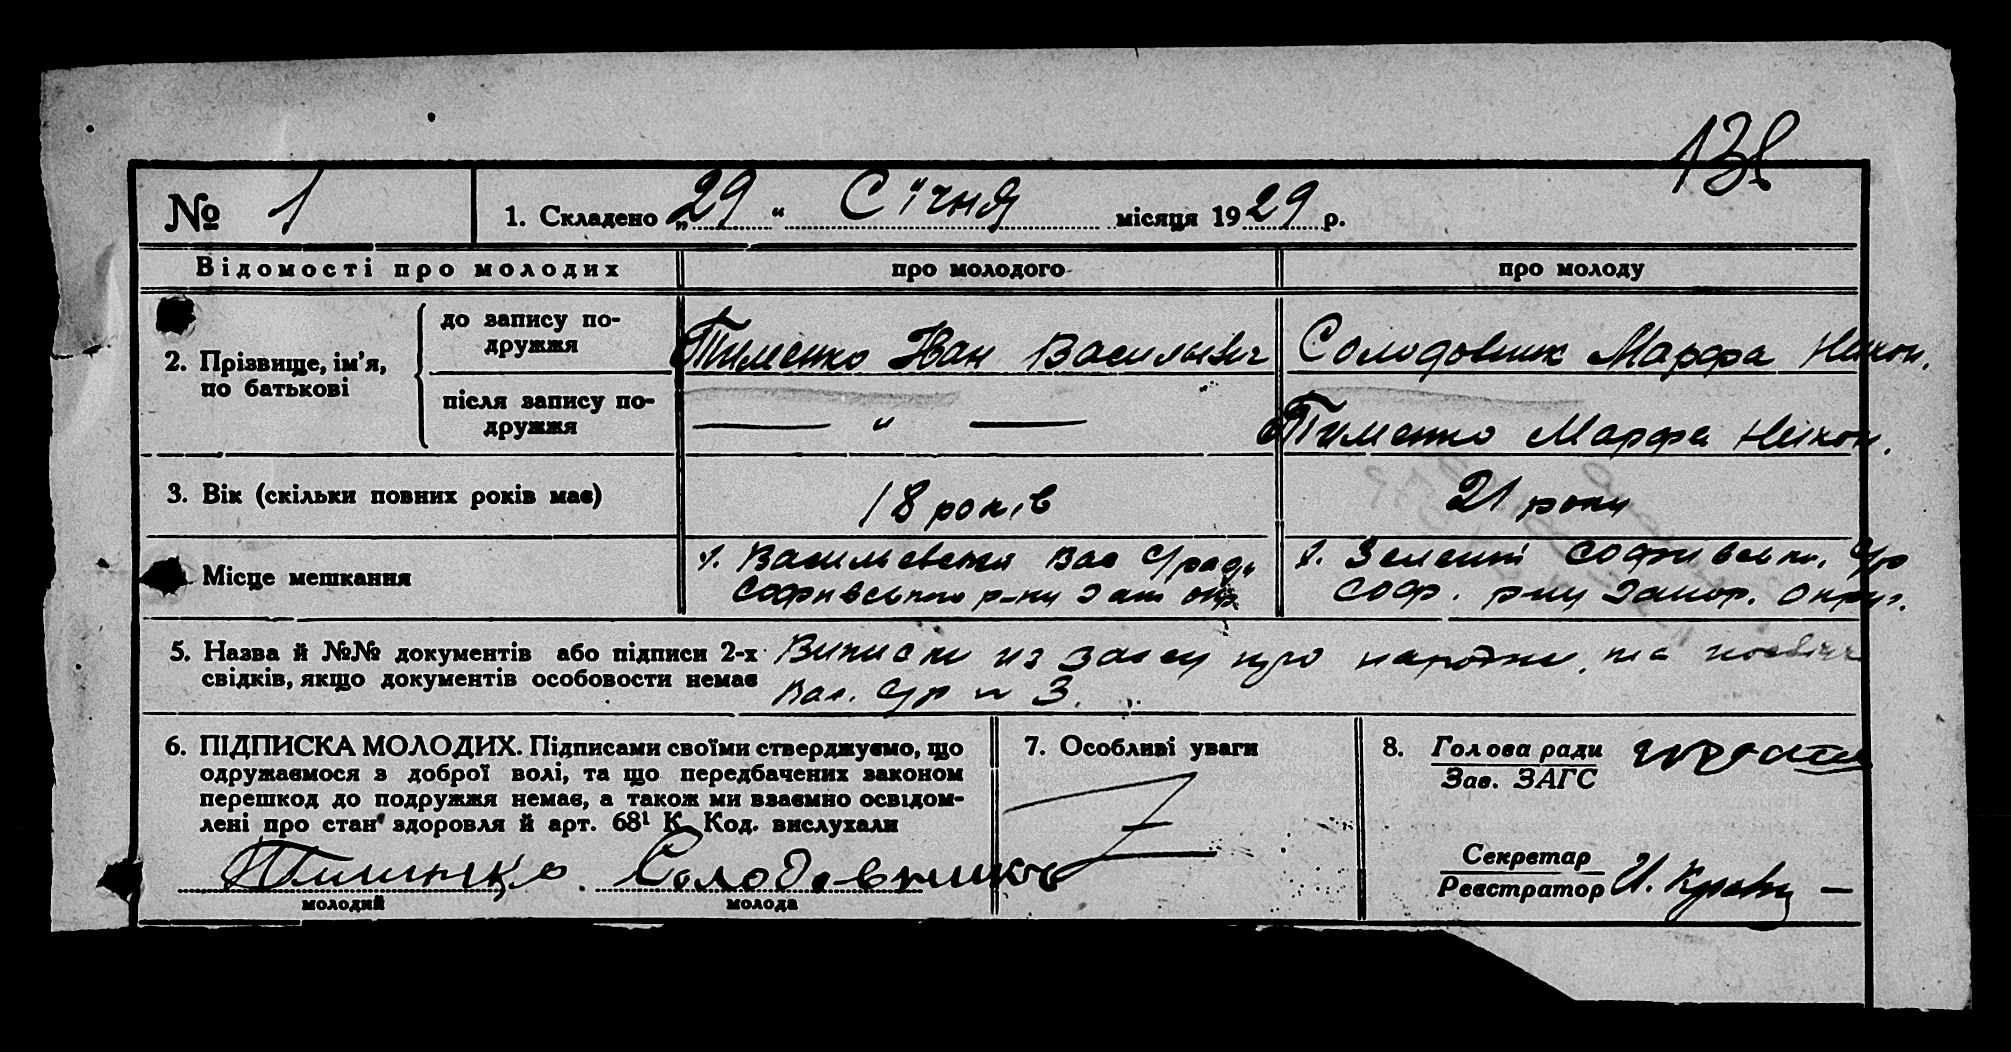 138
№ 1 1. Складено „29“ Січня місяця 1929 р.
Відомості про молодих про молодого про молоду
2. Прізвище, ім'я, по батькові
до запису по-
дружжя
Тименко Іван Васильвич Солодовник Марфа Никон.
після запису по-
дружжя
— „ — Тименко Марфа Никон.
3. Вік (скільки повних років має) 18 років 21 роки
Місце мешкання
с. Василевська Вас с/ради
Софиевського р-ну Зап окр
с. Зелений Софиевськ. с/р
Соф. р-ну Запор. Округ.
5. Назва й №№ документів або підписи 2-х
свідків, якщо документів особовости немає
Виписки из Загсу про народже, та
Вас. с/р № 3.
6. ПІДПИСКА МОЛОДИХ. Підписами своїми стверджуємо, що
одружаємося з доброї волі, та що передбачених законом
перешкод до подружжя немає, а також ми взаємно освідом-
лені про стан здоровля й арт. 68¹ К. Код. вислухали
Тименко Солодовникова
молодий молода
7. Особливі уваги
8. Голова ради
Зав. ЗАГС
Секретар
Реєстратор